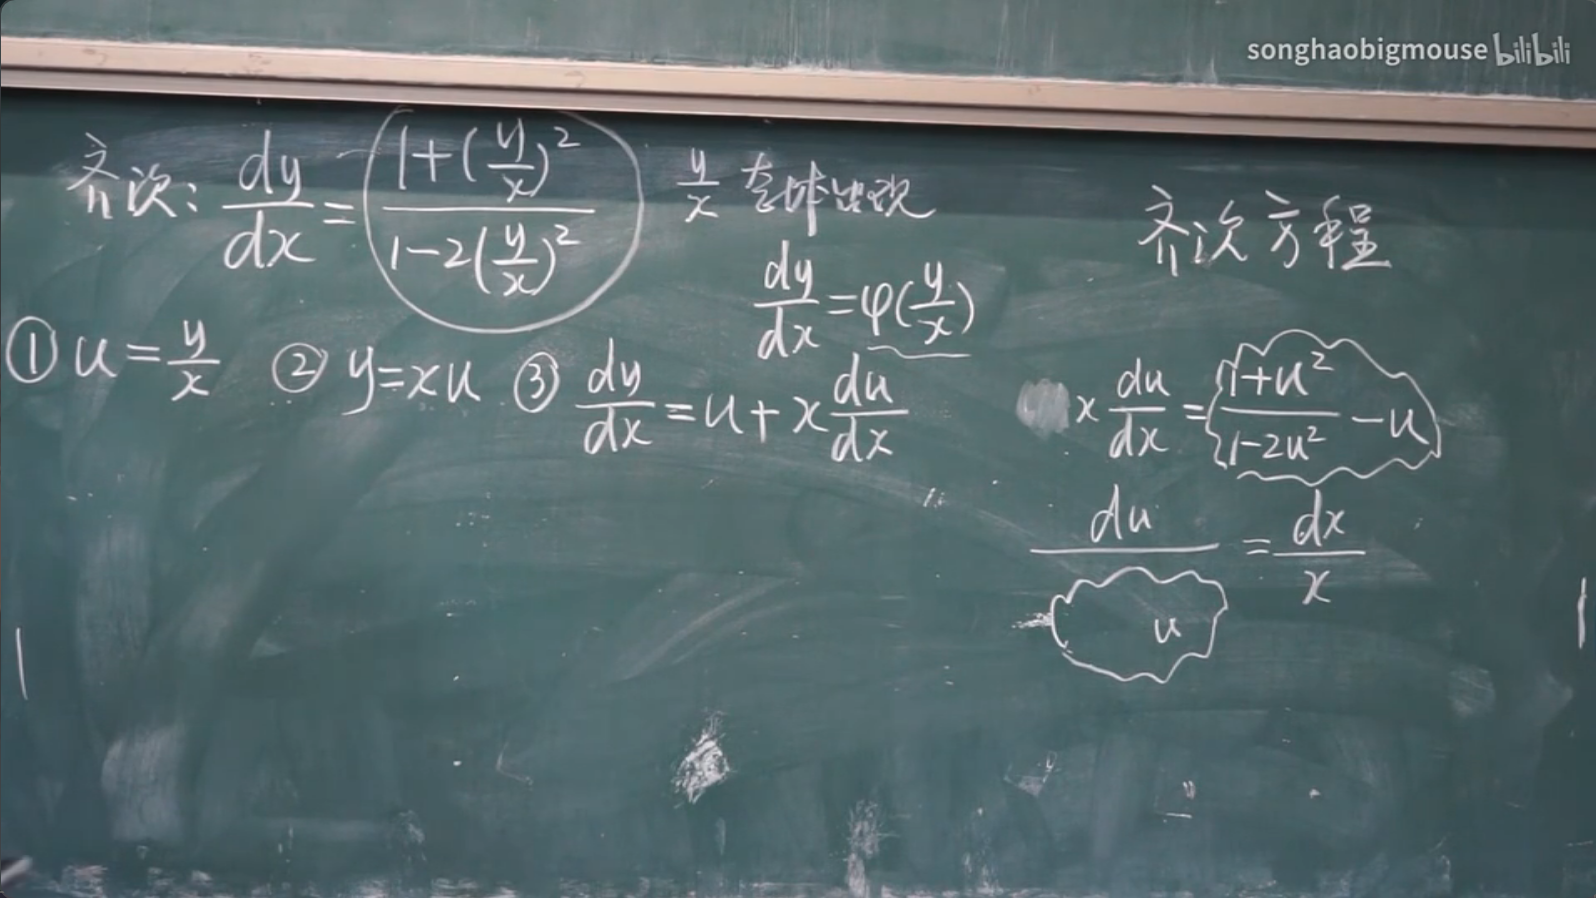 songhaobigmouse bilibili
齐次: dy/dx = (1+(y/x)²)/(1-2(y/x)²)
y/x 整体出现
齐次方程
dy/dx = φ(y/x)
① u = y/x ② y = xu ③ dy/dx = u + x du/dx
x du/dx = (1+u²)/(1-2u²) - u
du/u = dx/x